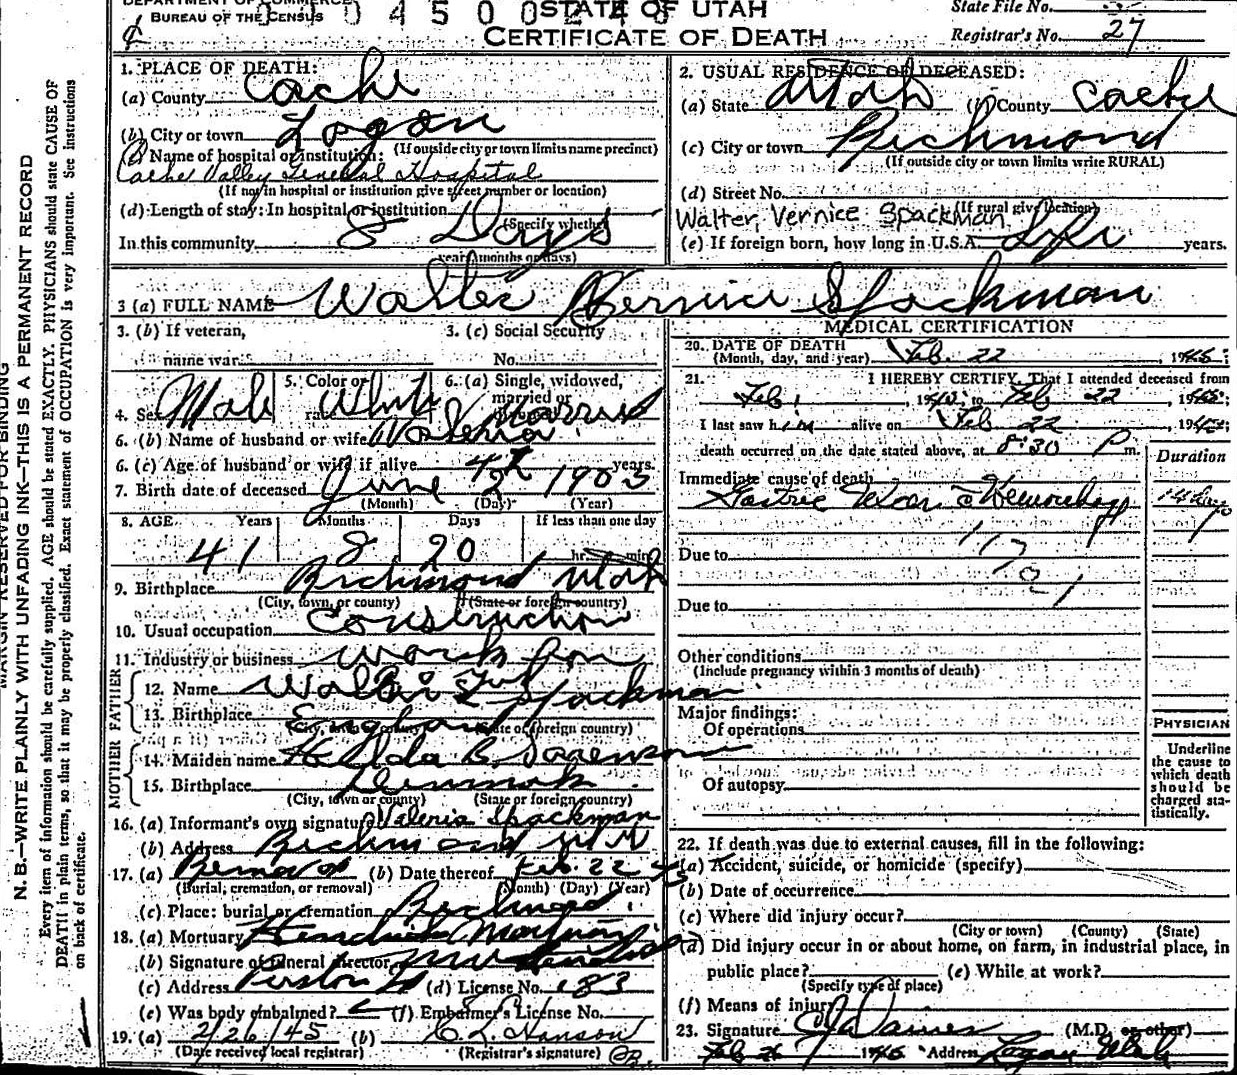 DEPARTMENT OF COMMERCE
BUREAU OF THE CENSUS
STATE OF UTAH
CERTIFICATE OF DEATH
State File No.
Registrar's No. 27
MARGIN RESERVED FOR BINDING
N. B.—WRITE PLAINLY WITH UNFADING INK—THIS IS A PERMANENT RECORD
Every item of information should be carefully supplied. AGE should be stated EXACTLY. PHYSICIANS should state CAUSE OF
DEATH in plain terms, so that it may be properly classified. Exact statement of OCCUPATION is very important. See instructions
on back of certificate.
1. PLACE OF DEATH:
(a) County Cache
(b) City or town Logan
(If outside city or town limits name precinct)
(c) Name of hospital or institution:
Cache Valley General Hospital
(If not in hospital or institution give street number or location)
(d) Length of stay: In hospital or institution
(Specify whether
In this community 8 Days
years, months or days)
2. USUAL RESIDENCE OF DECEASED:
(a) State Utah (b) County Cache
(c) City or town Richmond
(If outside city or town limits write RURAL)
(d) Street No.
(If rural give location)
Walter, Vernice Spackman
(e) If foreign born, how long in U.S.A. Life years.
3 (a) FULL NAME Walter Vernice Spackman
3. (b) If veteran,
name war
3. (c) Social Security
No.
4. Sex Male
5. Color or
race White
6. (a) Single, widowed,
married or
divorced Married
6. (b) Name of husband or wife Valeria
6. (c) Age of husband or wife if alive 42 years.
7. Birth date of deceased June 2 1903
(Month) (Day) (Year)
8. AGE Years Months Days If less than one day
41 8 20 hr. min.
9. Birthplace Richmond Utah
(City, town, or county) (State or foreign country)
10. Usual occupation Construction
11. Industry or business work for
FATHER
12. Name Walter Spackman
13. Birthplace England
(City, town or county) (State or foreign country)
MOTHER
14. Maiden name Hilda B. Sorenson
15. Birthplace Denmark
(City, town or county) (State or foreign country)
16. (a) Informant's own signature Valeria Spackman
(b) Address Richmond Utah
17. (a) Removal (b) Date thereof Feb. 22 45
(Burial, cremation, or removal) (Month) (Day) (Year)
(c) Place: burial or cremation Richmond
18. (a) Mortuary Hendricks Mortuary
(b) Signature of funeral director
(c) Address Preston (d) License No. 183
(e) Was body embalmed? (f) Embalmer's License No.
19. (a) 2/26/45 (b) C. L. Hanson
(Date received local registrar) (Registrar's signature)
MEDICAL CERTIFICATION
20. DATE OF DEATH
(Month, day, and year) Feb. 22, 1945;
21. I HEREBY CERTIFY, That I attended deceased from
Feb. 1, 1945, to Feb 22, 1945;
I last saw him alive on Feb 22, 1945;
death occurred on the date stated above, at 8:30 P m.
Duration
Immediate cause of death
Gastric Ulcer c Hemorrhage 14 days
117
Due to
Due to
Other conditions
(Include pregnancy within 3 months of death)
Major findings:
Of operations
Of autopsy
PHYSICIAN
Underline
the cause to
which death
should be
charged sta-
tistically.
22. If death was due to external causes, fill in the following:
(a) Accident, suicide, or homicide (specify)
(b) Date of occurrence
(c) Where did injury occur?
(City or town) (County) (State)
(d) Did injury occur in or about home, on farm, in industrial place, in
public place? (e) While at work?
(Specify type of place)
(f) Means of injury
23. Signature (M.D. or other)
Feb 26 1945 Address Logan Utah